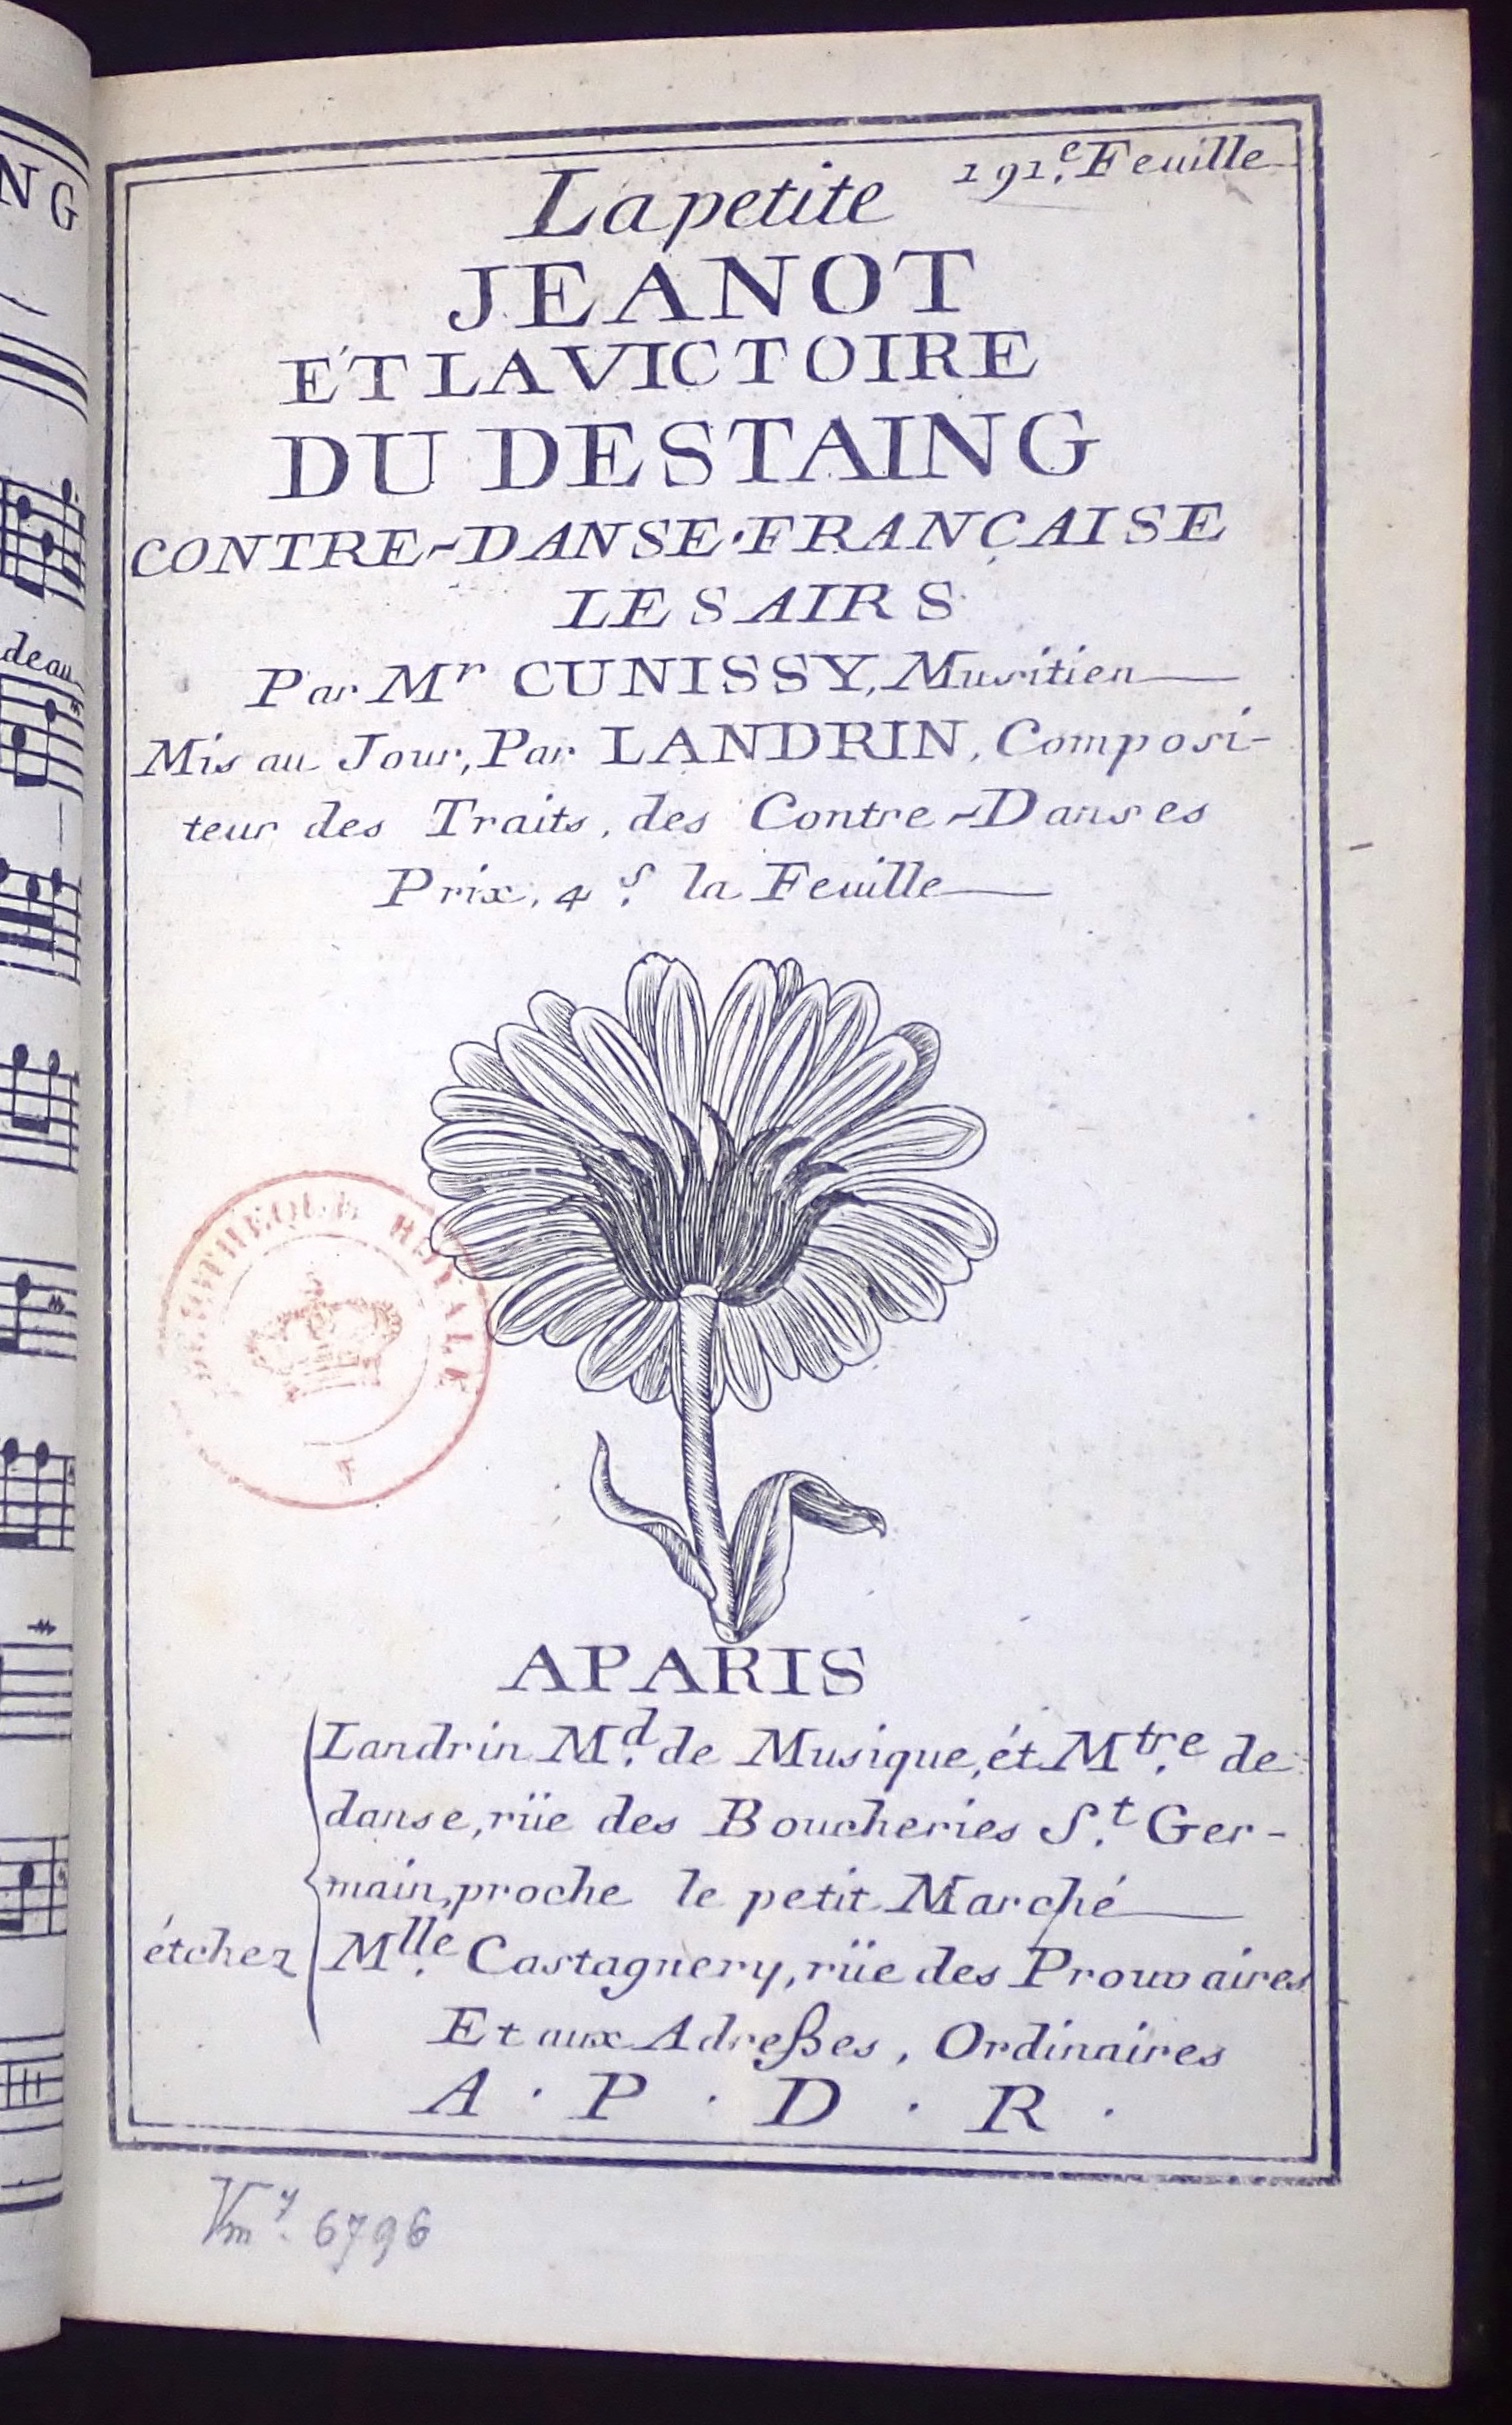 191.e Feuille
La petite
JEANOT
ET LA VICTOIRE
DU DESTAING
CONTRE-DANSE FRANÇAISE
LES AIRS
Par Mr CUNISSY, Musitien
Mis au Jour, Par LANDRIN, Composi-
teur des Traits, des Contre-Danses
Prix, 4 s. la Feuille
BIBLIOTHEQUE ROYALE
A PARIS
Landrin M.d de Musique, ét M.tre de
danse, rüe des Boucheries S.t Ger-
main, proche le petit Marché
ét chez M.lle Castagnery, rüe des Prouvaires
Et aux Adreßes, Ordinaires
A . P . D . R .
Vm7. 6796
NG
deau